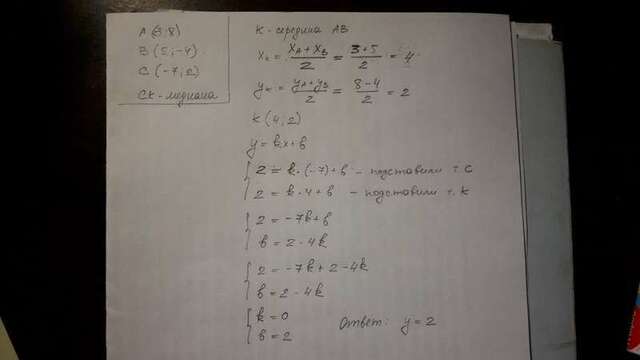 A (3; 8)
B (5; -4)
C (-7; 2)
CK - медиана
K - середина AB
x_K = (x_A + x_B)/2 = (3+5)/2 = 4
y_K = (y_A + y_B)/2 = (8-4)/2 = 2
K (4; 2)
y = kx + b
2 = k·(-7) + b - подставили т. C
2 = k·4 + b - подставили т. K
2 = -7k + b
b = 2 - 4k
2 = -7k + 2 - 4k
b = 2 - 4k
k = 0
b = 2
Ответ: y = 2